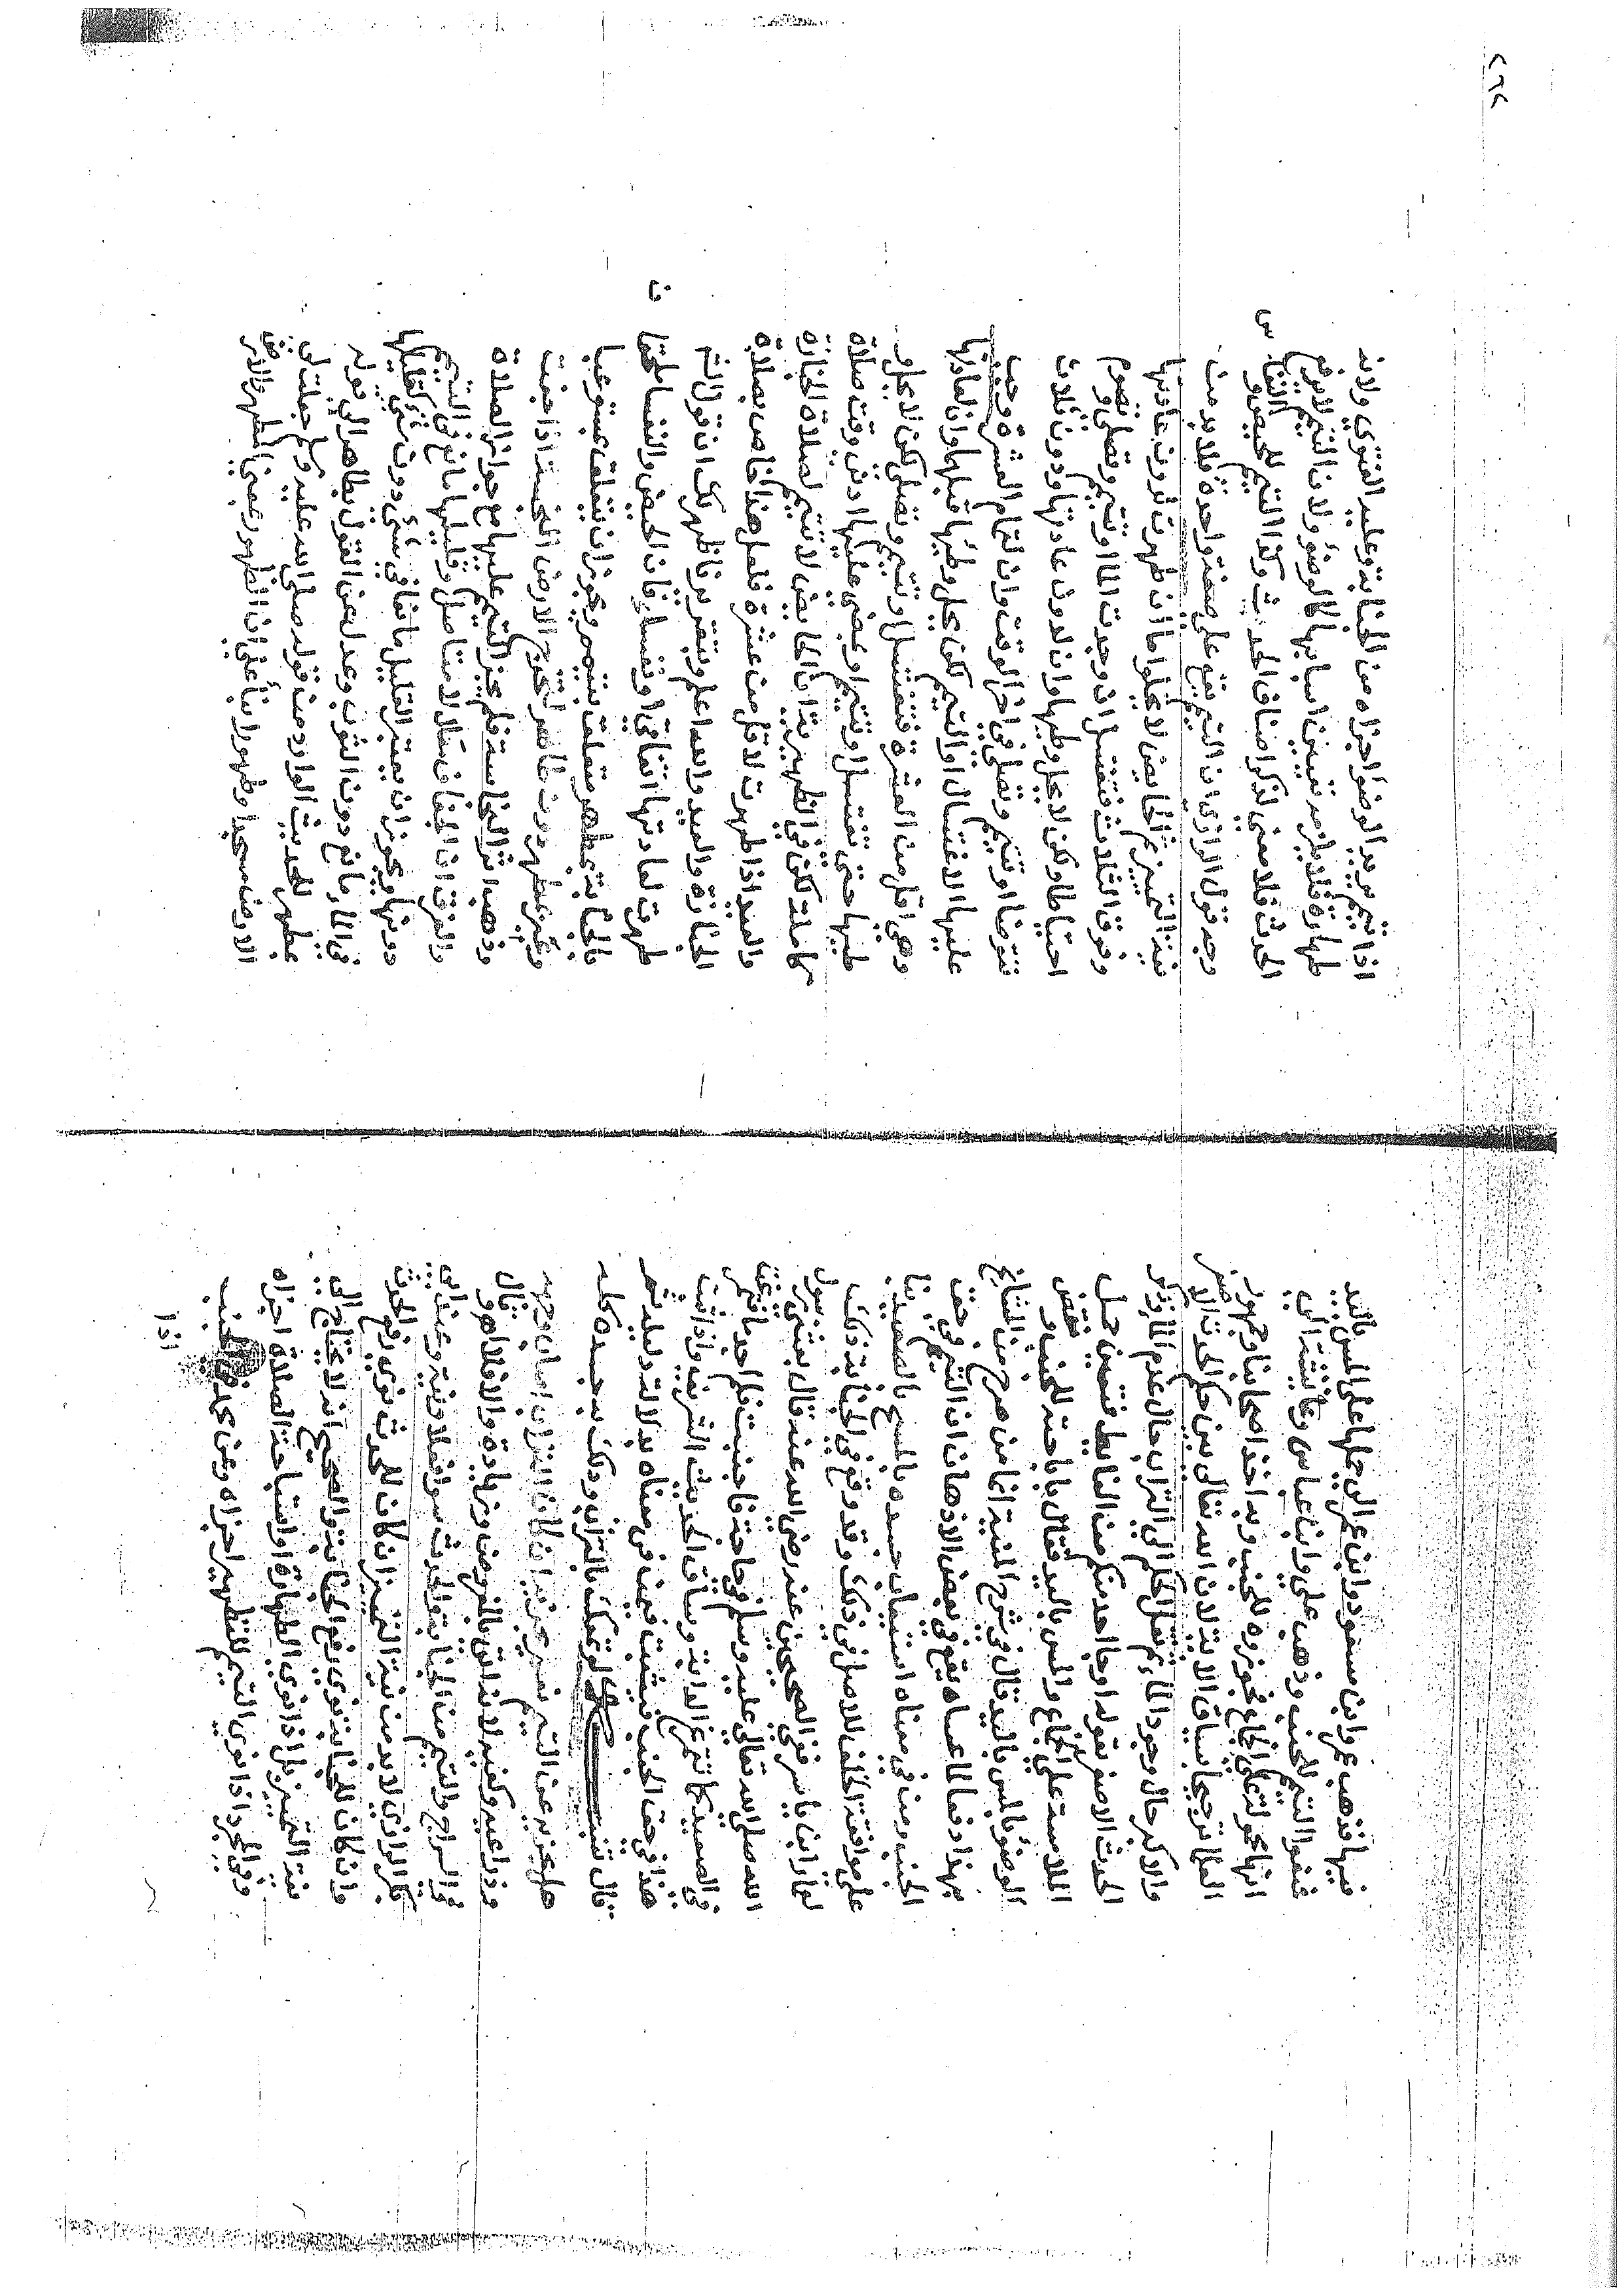 فيها فذهب عمر وابن مسعود وابن عمر الى حملها على المس باليد
فمنعوا التيمم للجنب وذهب علي وابن عباس وعائشة الى
انها محمولة على الجماع فجوزوه للجنب وبه اخذ اصحابنا وجمهور
العلما ترجيحا بسياق الاية لان الله تعالى بين حكم الحدث الاصغر
والاكبر حال وجود الماء ثم نقل الحكم الى التراب حال عدم الما وذكر
الحدث الاصغر بقوله او جا احد منكم من الغايط فتعين حمل
الملامسة على الجماع والمس باليد فقال باباحته للجنب ونقض
الوضوء بالمس باليد قال في شرح المنية انا من صرح من المشايخ
بهذا دفعا لما عساه يقع في بعض الاذهان ان التيمم في حق
الجنب ومن في معناه استيعاب جسده بالمسح بالصعيد بنا
على موافقة الخلف للاصل في ذلك وقد وقع في الجنابة ذلك
لعمار بن ياسر ففي الصحيحين عنه رضي الله عنه قال بعثني رسول
الله صلى الله تعالى عليه وسلم في حاجة فاجنبت فلم اجد ما فتمرغت
في الصعيد كما تتمرغ الدابة وساق الحديث الشريف واذا ثبت
هذا في حق الجنب فيثبت فيمن في معناه بدلالته دليله ثم
قال تنبيه لو تمعك بالتراب ودلك به جسده كله
هل يجزيه عن التيمم نعم يجزيه ان كان التراب اصاب وجهه
وذراعيه وكفيه لانه اتى بالمفروض وزيادة والا فلا هو قال
في السراج والتيمم من الجنابة والحدث سوا فعلا ونية وعند ابي
بكر الرازي لا بد من نية التمييز ان كان للحدث نوى رفع الحدث
وان كان للجنابة نوى رفع الجنابة والصحيح انه لا يحتاج الى
نية التمييز بل اذا نوى الطهارة او استباحة الصلاة اجزاه
وفي المجرد اذا نوى التيمم للتطهير اجزاه وعن محمد في الجنب
اذا
اذا تيمم يريد الوضوء اجزاه من الجنابة وعليه الفتوى ولانه
طهارة فلا يلزمه تعيين اسبابها كالوضوء ولان التيمم لا يرفع
الحدث فلا معنى لذكر اصناف الحدث وكذا التيمم للحيض والنفاس
وجه قول الرازي ان التيمم يقع على صفة واحدة فلا بد من
نية التمييز ثم الحايض لا يخلوا ما ان طهرت لدون عادتها
وفوق الثلاث فتغتسل ان وجدت الما او تتيمم وتصلي وتصوم
احتياطا ولكن لا يحل وطيها وان لدون عادتها ودون ثلاث
تتوضا او تتيمم وتصلي في اخر الوقت وان لتمام العشرة وجب
عليها الاغتسال او التيمم لكن يحل وطيها قبلهما وان لعادتها
وهي اقل من العشرة فتغتسل او تتيمم وتصلي لكن لا يحل و
طيها حتى تغتسل او تتيمم او يمضي عليها ادنى وقت صلاة
كاملة لكن في الظهيرية ان الحايض لا تتيمم لصلاة الجنازة
والعيد اذا طهرت لاقل من عشرة فلعل هذا خاص بصلاة
الجنازة والعيد والله اعلم ويتقرر بما ظهر لك ان قول الشم
طهرت لعادتها اتفاقي او وتغتسل فان الحيض والنفسا ملحقا ن
بالجنابة بمطهر متعلق بتيمم ويجوز ان يتعلق بمستوعبا
وخرج بمطهر دون طاهر لتخرج الارض النجسة اذا جفت
وذهب اثر النجاسة فلم يجز التيمم عليها مع جواز الصلاة
والفرق ان الجفاف مقلل لا مستاصل وقليلها مانع في التيمم
دونها ويجوز ان يعتبر القليل مانعا في شيء دون شيء كقليلها
في الماء مانع دون الثوب وعدل عن القول بطاهر الى قوله
بمطهر للحديث الوارد من قوله صلى الله عليه وسلم جعلت لي
الارض مسجدا وطهورا بناء على ان الطهور بمعنى المطهر والارض